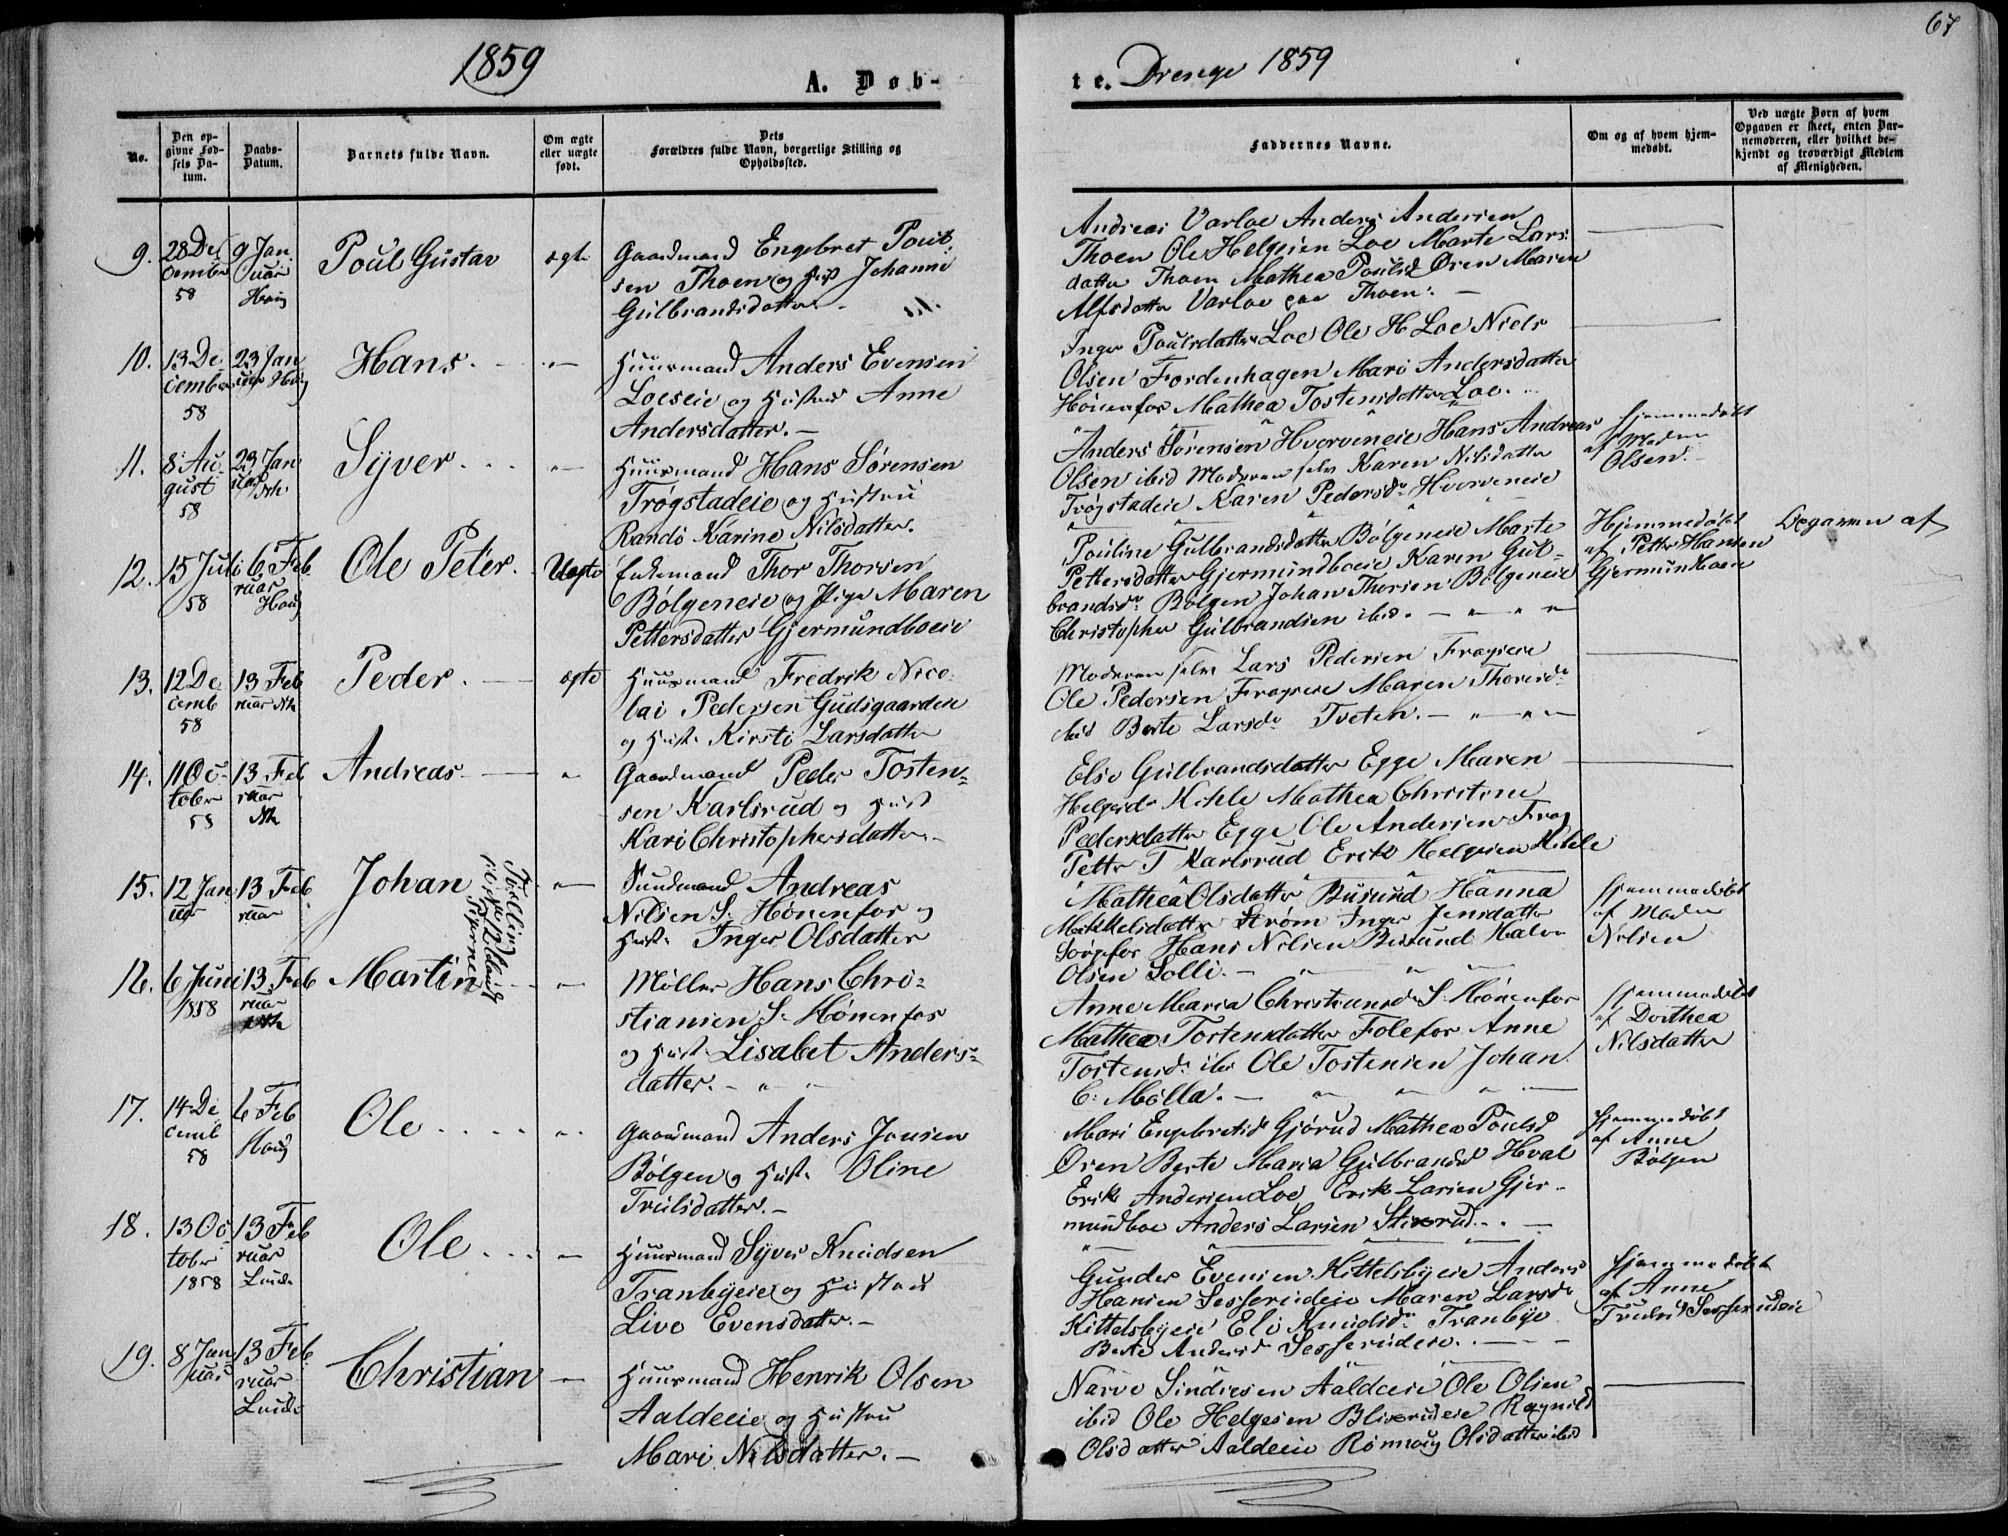 67
1859
A. Døb-
te. Drenge 1859
No.
Den op-
givne Fød-
sels Da-
tum.
Daabs-
Datum.
Barnets fulde Navn.
Om ægte
eller uægte
født.
Dets
Forældres fulde Navn, borgerlige Stilling og
Opholdssted.
Faddernes Navne.
Om og af hvem hjem-
medøbt.
Ved uægte Børn af hvem
Opgaven er skeet, enten Bar-
nemoderen, eller hvilket be-
kjendt og troværdigt Medlem
af Menigheden.
9.
28 De
cember
58
9 Jan
uar
Houg
Poul Gustav
ægte
Gaardmand Engebret Poul-
sen Thoen og Hust Johanne
Gulbrandsdatter.
Andreas Varloe Anders Andersen
Thoen Ole Helgesen Loe Marte Lars
datter Thoen Mathea Poulsd Øren Maren
Alfsdatter Varloe Thoen. -
10.
13 De
cember
58
23 Jan
uar Houg
Hans.
Huusmand Anders Evensen
Loeseie og Hustrue Anne
Andersdatter. -
Inger Poulsdatter Loe Ole H Loe Niels
Olsen Fordenhagen Mari Andersdatter
Hønenfos Mathea Tostensdatter Loe.
11.
8 Au
gust
58
23 Jan
uar Nh
Syver
Huusmand Hans Sørensen
Trøgstadeie og Hustru
Randi Karine Nilsdatter.
Anders Sørensen Hvorveneie Hans Andreas
Olsen ibid Moderen selv Karen Nilsdatter
Trøgstadeie Karen Pedersdr Hvorveneie
Hjemmedøbt
af Maden
Olsen.
12.
15 Juli
58
6 Feb
ruar
Houg
Ole Peter.
Uægte
Enkemand Thor Thorsen
Bølgeneie og Pige Maren
Pettersdatter Gjermundboeie
Pouline Gulbrandsdatter Bølgeneie Marte
Pettersdatter Gjermundboeie Karen Gul-
brandsdr Bølgen Johan Thorsen Bølgeneie
Christopher Gulbrandsen ibid. -
Hjemmedøbt
af Petter Hansen
Gjermundboeie
af
13.
12 De
cemb
58
13 Feb
ruar Nh
Peder.
ægte
Huusmand Fredrik Nico-
lai Pedersen Gudsgaarden
og Hust. Kirsti Larsdatter
Moderen selv Lars Pedersen Frogseie
Ole Pedersen Frogseie Maren Thorsdr
ibid Berte Larsdr Tveten. -
14.
11 Oc
tober
58
13 Feb
ruar
Nh
Andreas
Gaardmand Peder Tosten-
sen Karlsrud og Hust
Kari Christophersdatter. -
Else Gulbrandsdatter Egge Maren
Helgesdr Kihle Mathea Christine
Pedersdatter Egge Ole Andersen Frog
Petter T Karlsrud Erik Helgesen Kihle
15.
12 Jan
uar
13 Feb
ruar
Johan
Sundmand Andreas
Nilsen S. Hønenfos og
Hust. Inger Olsdatter
Mathea Olsdatter Busund Hanna
Mikkelsdatter Strøm Inger Jensdatter
Hans Nilsen Busund Halvor
Olsen Solli. -
Hjemmedøbt
af Maden
Nilsen
16.
6 Juni
1858
13 Feb
ruar
Nh
Martin
Møller Hans Chri-
stiansen S. Hønenfos
og Hust. Lisabet Anders-
datter. -
Anne Maria Christiansdr S. Hønenfos
Mathea Tostensdatter Folefos Anne
Tostensdr ibid Ole Tostensen Johan
C. Mølla. -
Hjemmedøbt
af Dorthea
Nilsdatter
17.
14 De
cemb
58
6 Feb
Houg
Ole
Gaardmand Anders Jensen
Bølgen og Hust. Oline
Trulsdatter. -
Mari Engebretsd Gjørud Mathea Poulsd
Øren Berte Maria Gulbrandsd Hval
Erik Andersen Loe Erik Larsen Gjer-
mundboe Anders Larsen Stixrud. -
Hjemmedøbt
af Anne
Bølgen
18.
13 Oc
tober
1858
13 Feb
ruar
Lunder
Ole
Huusmand Syver Knudsen
Tranbyeie og Hustrue
Live Evensdatter. -
Gunder Evensen Kittelsbyeie Anders
Hansen Sesserudeie Maren Larsdr
Kittelsbyeie Eli Knudsdr Tranbye
Berte Andersdr Sesserudeie. -
Hjemmedøbt
af Anne
Trulsd Sesserudeie
19.
8 Jan
uar
13 Feb
ruar
Lunder
Christian
Huusmand Henrik Olsen
Aaldeeie og Hustru
Mari Nilsdatter. -
Narve Sindresen Aaldeeie Ole Olsen
ibid Ole Helgesen Blixrudeie Ragnild
Olsdatter Aaldeeie Rønnoug Olsdatter ibid